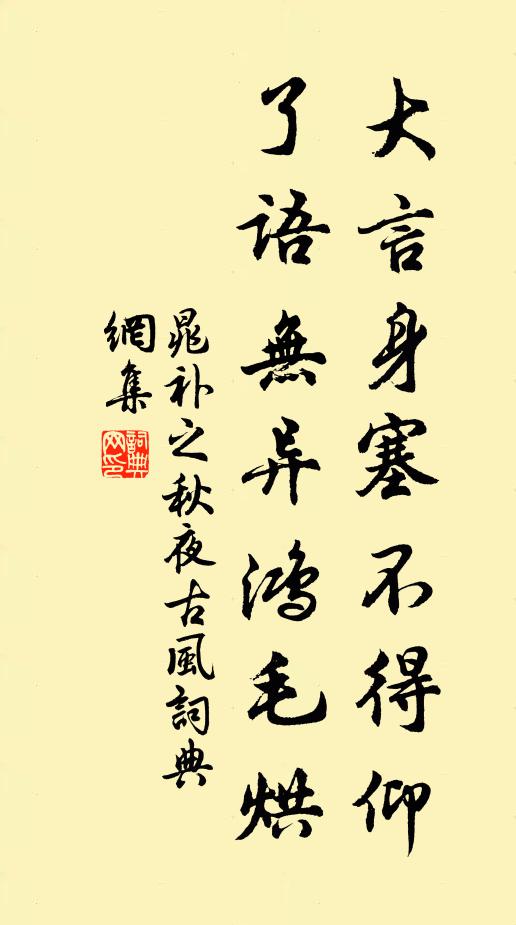 大言身塞不得仰
了语無异鴻毛烘
晁补之秋夜古風詞典
網集
詞典
网印